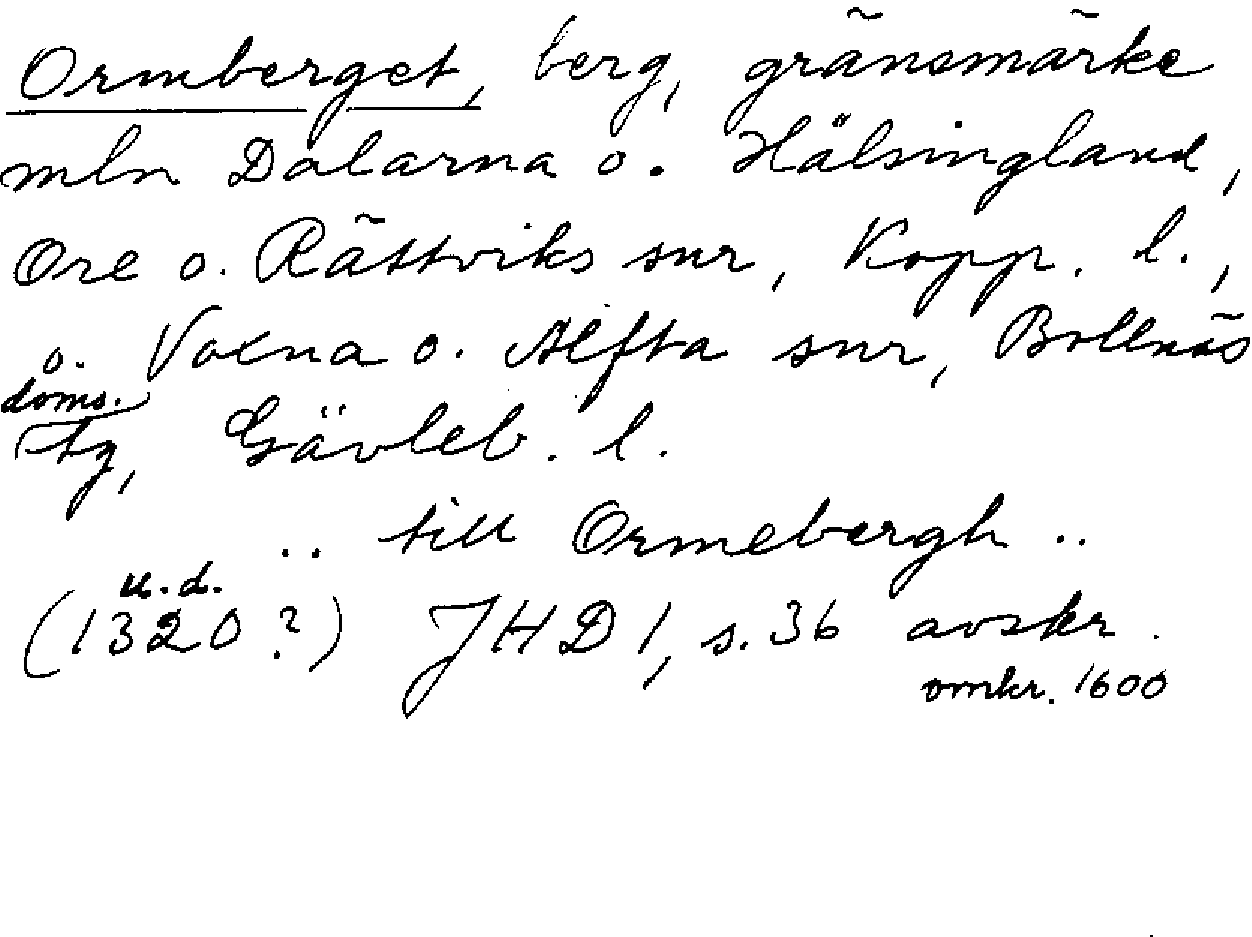 Ormberget, berg, gränsmärke
mln Dalarna o. Hälsingland,
Ore o. Rättviks snr, Kopp. l.,
o. Voxna o. Alfta snr, Bollnäs
doms.
tg, Gävleb. l.
.. till Ormebergh ..
u.d.
(1320?) JHD 1, s. 36 avskr.
omkr. 1600